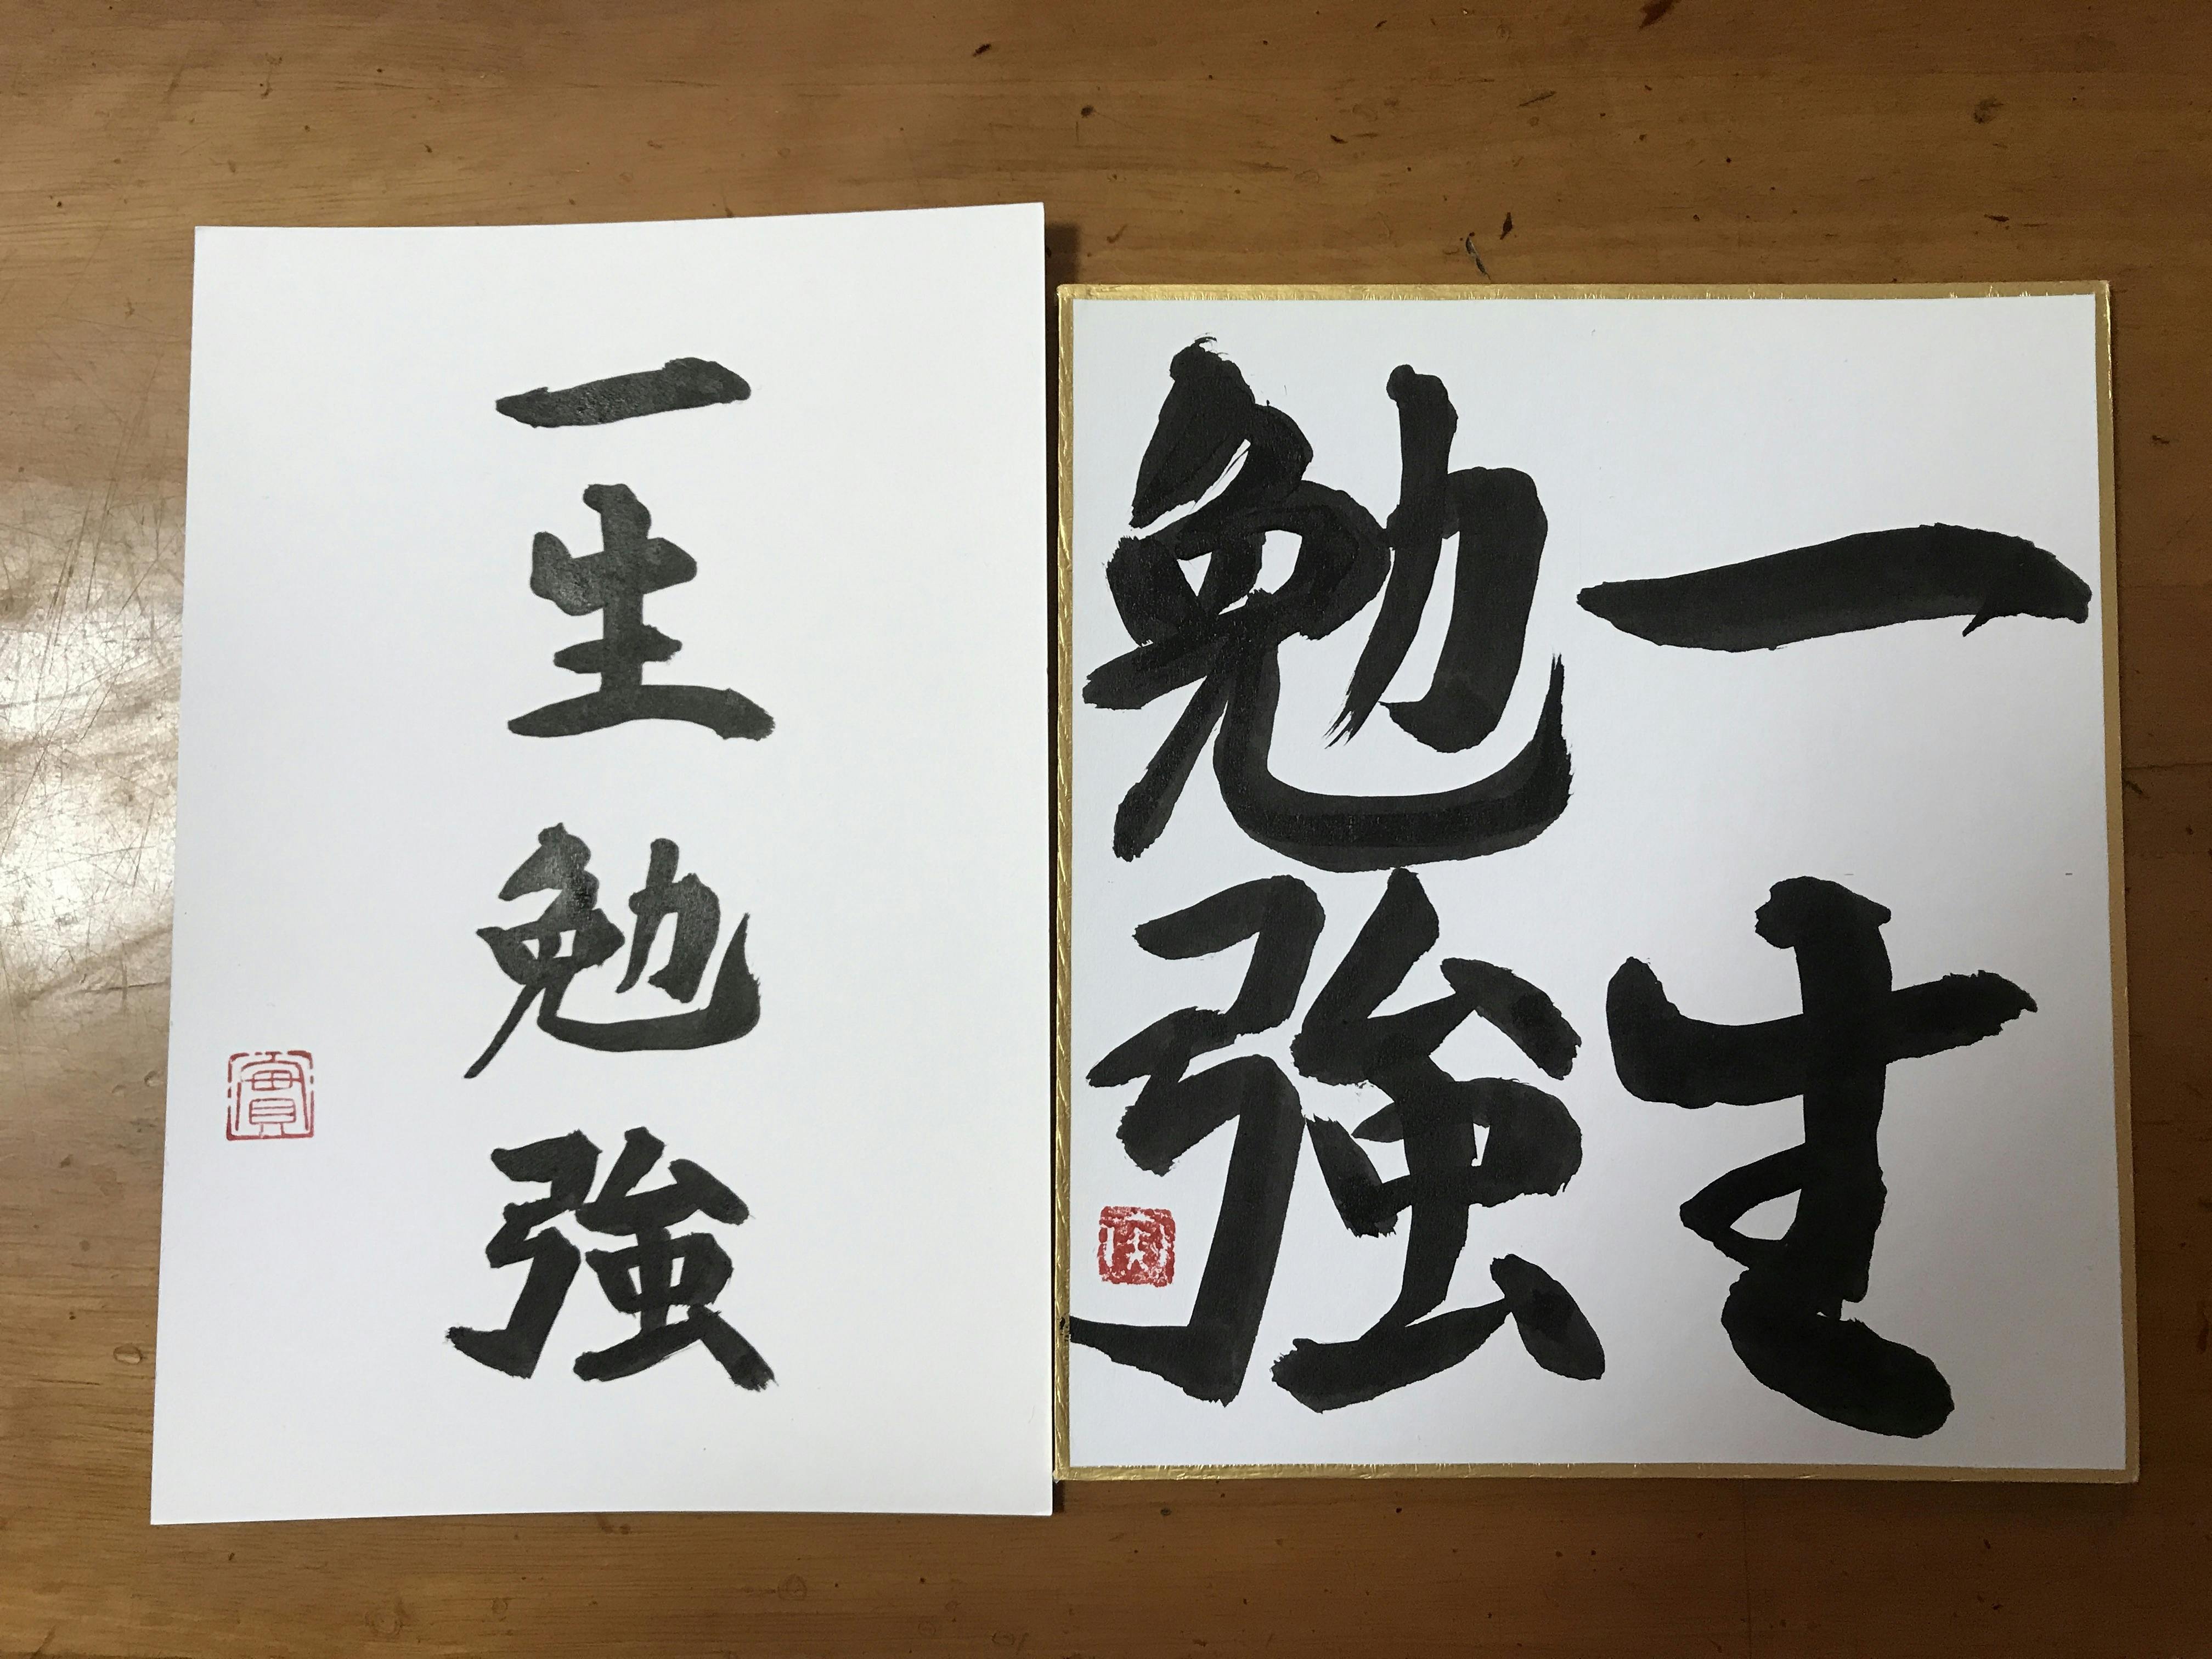 一生勉強
實
一生
勉強